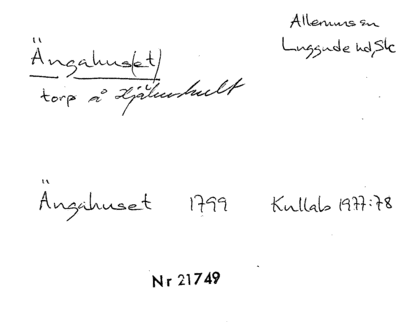 Ängahus(et)
Allerums sn
Luggude hd, Sk
torp å Hjälmshult
Ängahuset 1799 Kullab 1977:78
Nr 21749